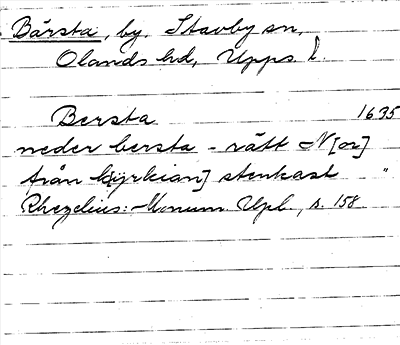 Bärsta, by. Stavby sn,
Olands hd, Upps. l.
Bersta 1635
neder bersta - rätt N[or]
från k[yrkian] stenkast "
Rhezelius: Monum. Upl., s. 158